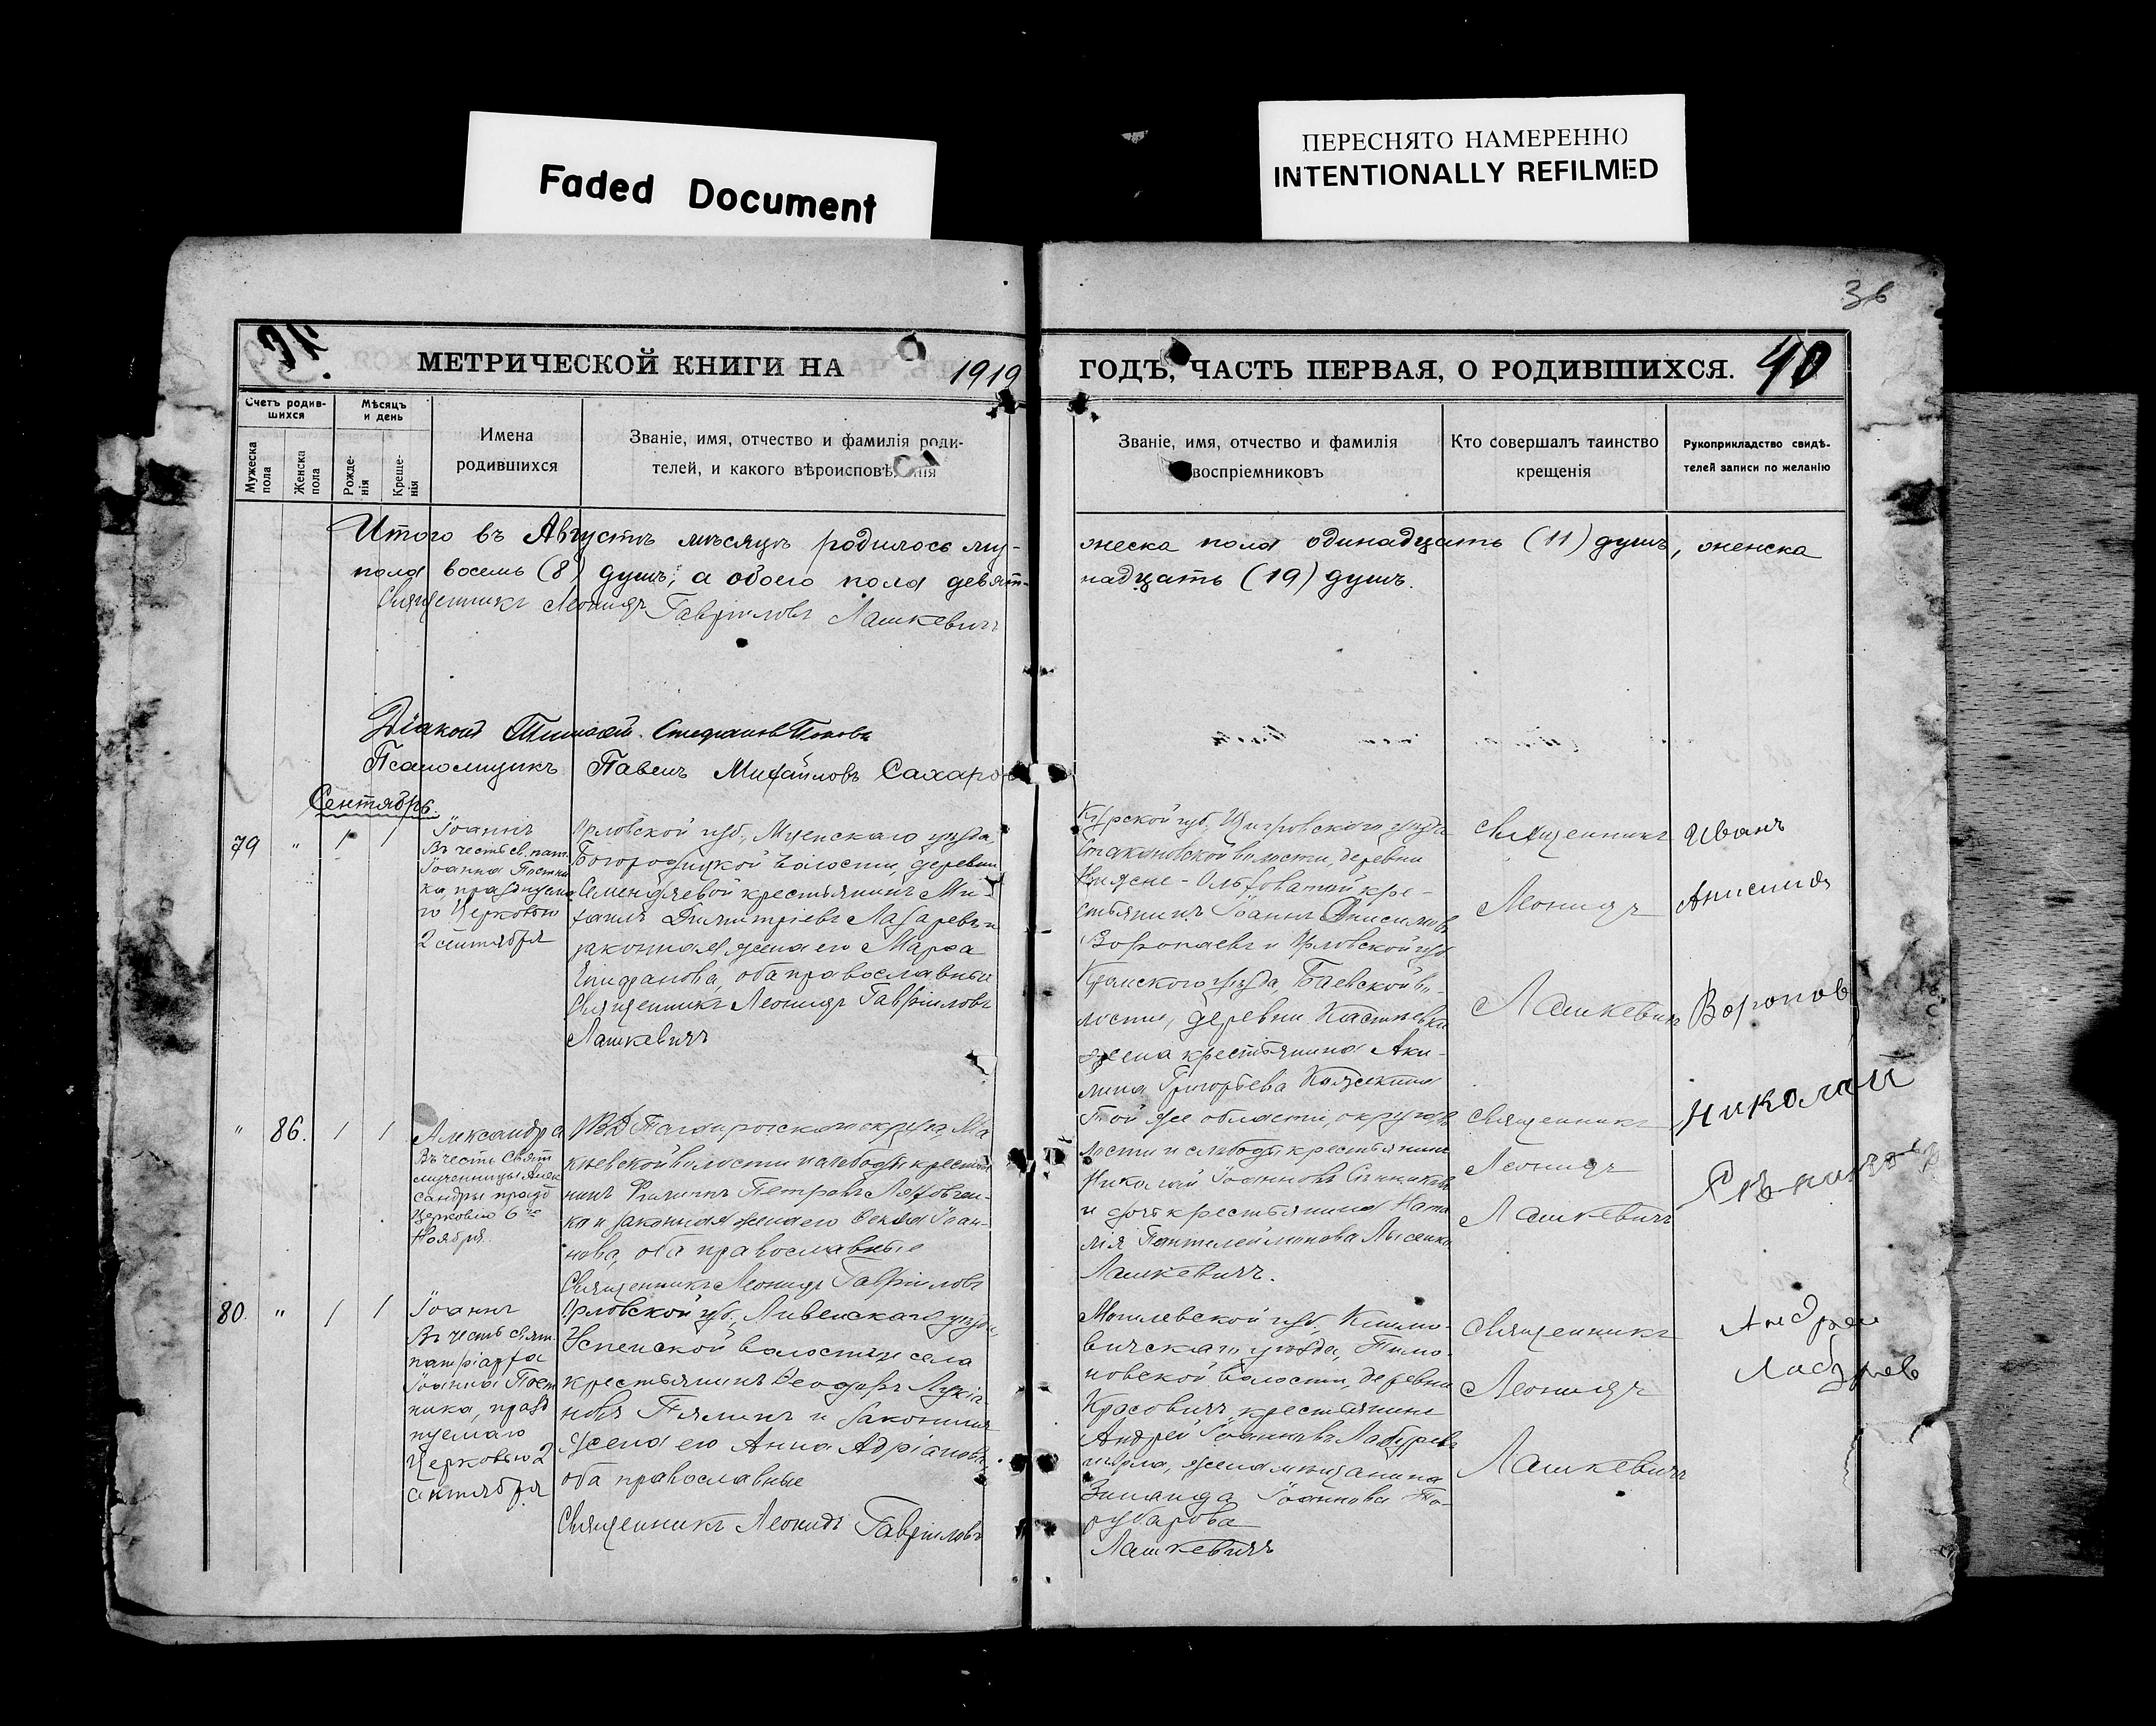 Faded Document
ПЕРЕСНЯТО НАМЕРЕННО
INTENTIONALLY REFILMED
36
МЕТРИЧЕСКОЙ КНИГИ НА 1919
ГОДЪ, ЧАСТЬ ПЕРВАЯ, О РОДИВШИХСЯ. 40
Счетъ родив-
шихся
Мужеска пола
Женска пола
Мѣсяцъ
и день
Рожде-
нія
Креще-
нія
Имена
родившихся
Званіе, имя, отчество и фамилія роди-
телей, и какого вѣроисповѣ нія
Званіе, имя, отчество и фамилія
воспріемниковъ
Кто совершалъ таинство
крещенія
Рукоприкладство свидѣ-
телей записи по желанію
Итого въ Августѣ мѣсяцѣ родилось му-
жеска пола одинадцать (11) душъ, женска
пола восемь (8) душъ; а обоего пола девят-
надцать (19) душъ.
Священникъ Леонидъ Гавріиловъ Лашкевичъ
Діаконъ Стефановъ Поповъ
Псаломщикъ Павелъ Михайловъ Сахаро
Сентябрь.
79 " 1 1
Іоаннъ
Въ честь св. пат.
Іоанна Постни
ка, празднуема
го Церковью
2 сентября
Орловской губ., Мценскаго уѣзда
Богородицкой волости, деревни
крестьянинъ Ми-
хаилъ Димитріевъ Лазаревъ и
законная жена его Марѳа
Епифанова, оба православные
Священникъ Леонидъ Гавріиловъ
Лашкевичъ
Курской губ., Щигровскаго уѣзда
Стакановской волости, деревни
кре-
стьянинъ Іоаннъ Анисимовъ
и Орловской губ
Кромскаго уѣзда,
лости, деревни
жена крестьянина Аки-
лина Григорьева
Священникъ
Леонидъ
Лашкевичъ
Иванъ
Анисимъ
Воропов
" 86. 1 1
Александра
Въ честь Свят
мученицы Алек
сандры празд
Церковью 6го
Ноября.
ОВД Таганрогскаго округа, Ма
кѣевской волости и слободы крестья
нинъ Филиппъ Петровъ
ка и законная жена его Іоан-
нова, оба православные
Священникъ Леонидъ Гавріиловъ
Той же области, округа, во
лости и слободы крестьянинъ
Николай Іоанновъ
и дочь крестьянина Ната
лія Пантелеймонова Лысенко
Лашкевичъ.
Священникъ
Леонидъ
Лашкевичъ
Николай
80. " 1 1
Іоаннъ
Въ честь свят.
патріарха
Іоанна Пост
ника, празд
нуемаго
Церковью 2
сентября
Орловской губ., Ливенскаго уѣзда,
Успенской волости и села
крестьянинъ Ѳеодоръ Лукіа
новъ и законная
жена его Анна Адріанова,
оба православные
Священникъ Леонидъ Гавріиловъ
Могилевской губ., Климо-
вичскаго уѣзда, Тимо-
новской волости, деревни
Красовичъ крестьянинъ
Андрей Іоанновъ
жена мѣщанина
Зинаида Іоаннова
Лашкевичъ
Священникъ
Леонидъ
Лашкевичъ
Андрей